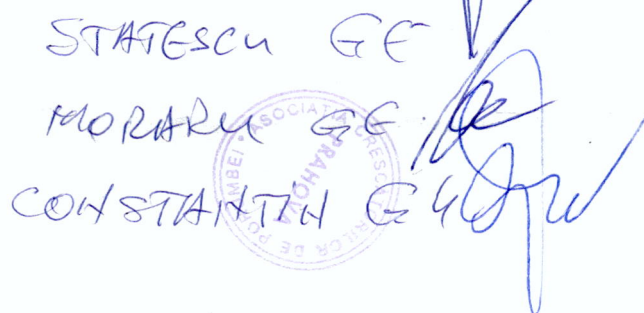 STATESCU GE
MORARU GE.
CONSTANTIN GH
ASOCIATIA CRESCATORILOR DE PORUMBEI
PRAHOVA